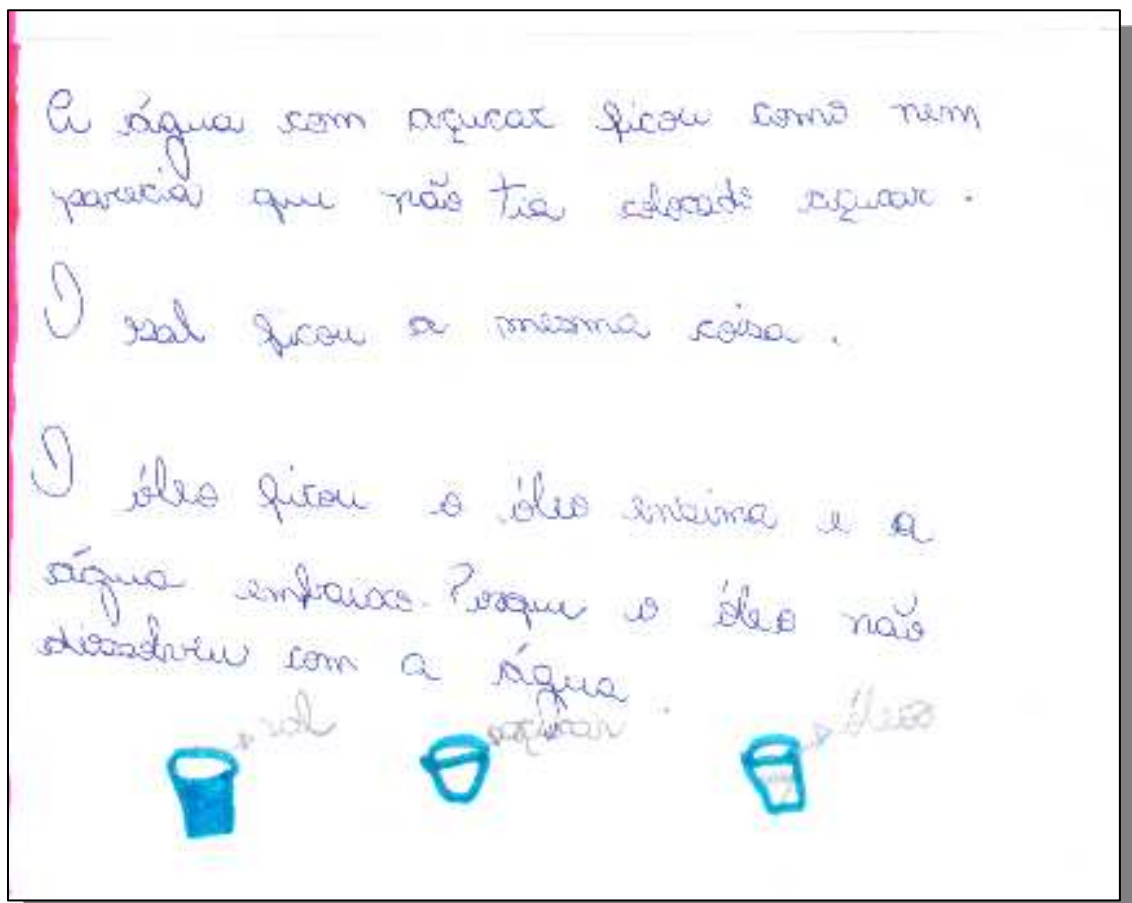 A água com açucar ficou como nem
parecia que não tia colocado açucar.
O sal ficou a mesma coisa.
O óleo ficou o óleo ensima e a
água embaixo. Porque o óleo não
dissolveu com a água.
sal açucar óleo